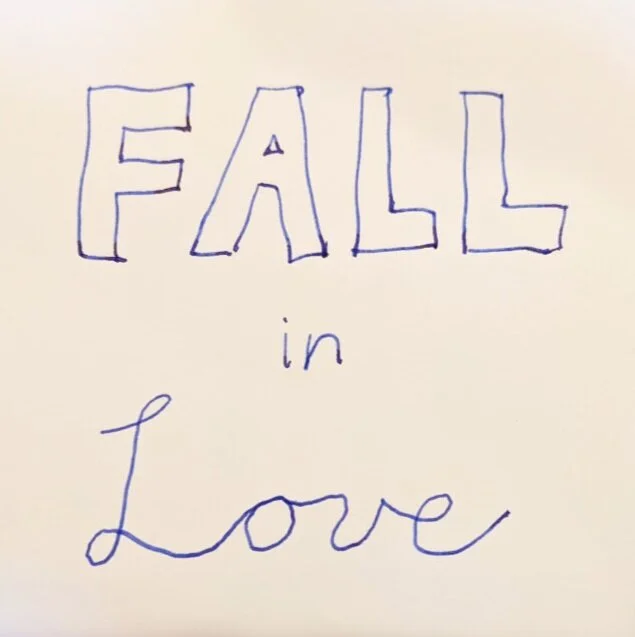 FALL
in
Love